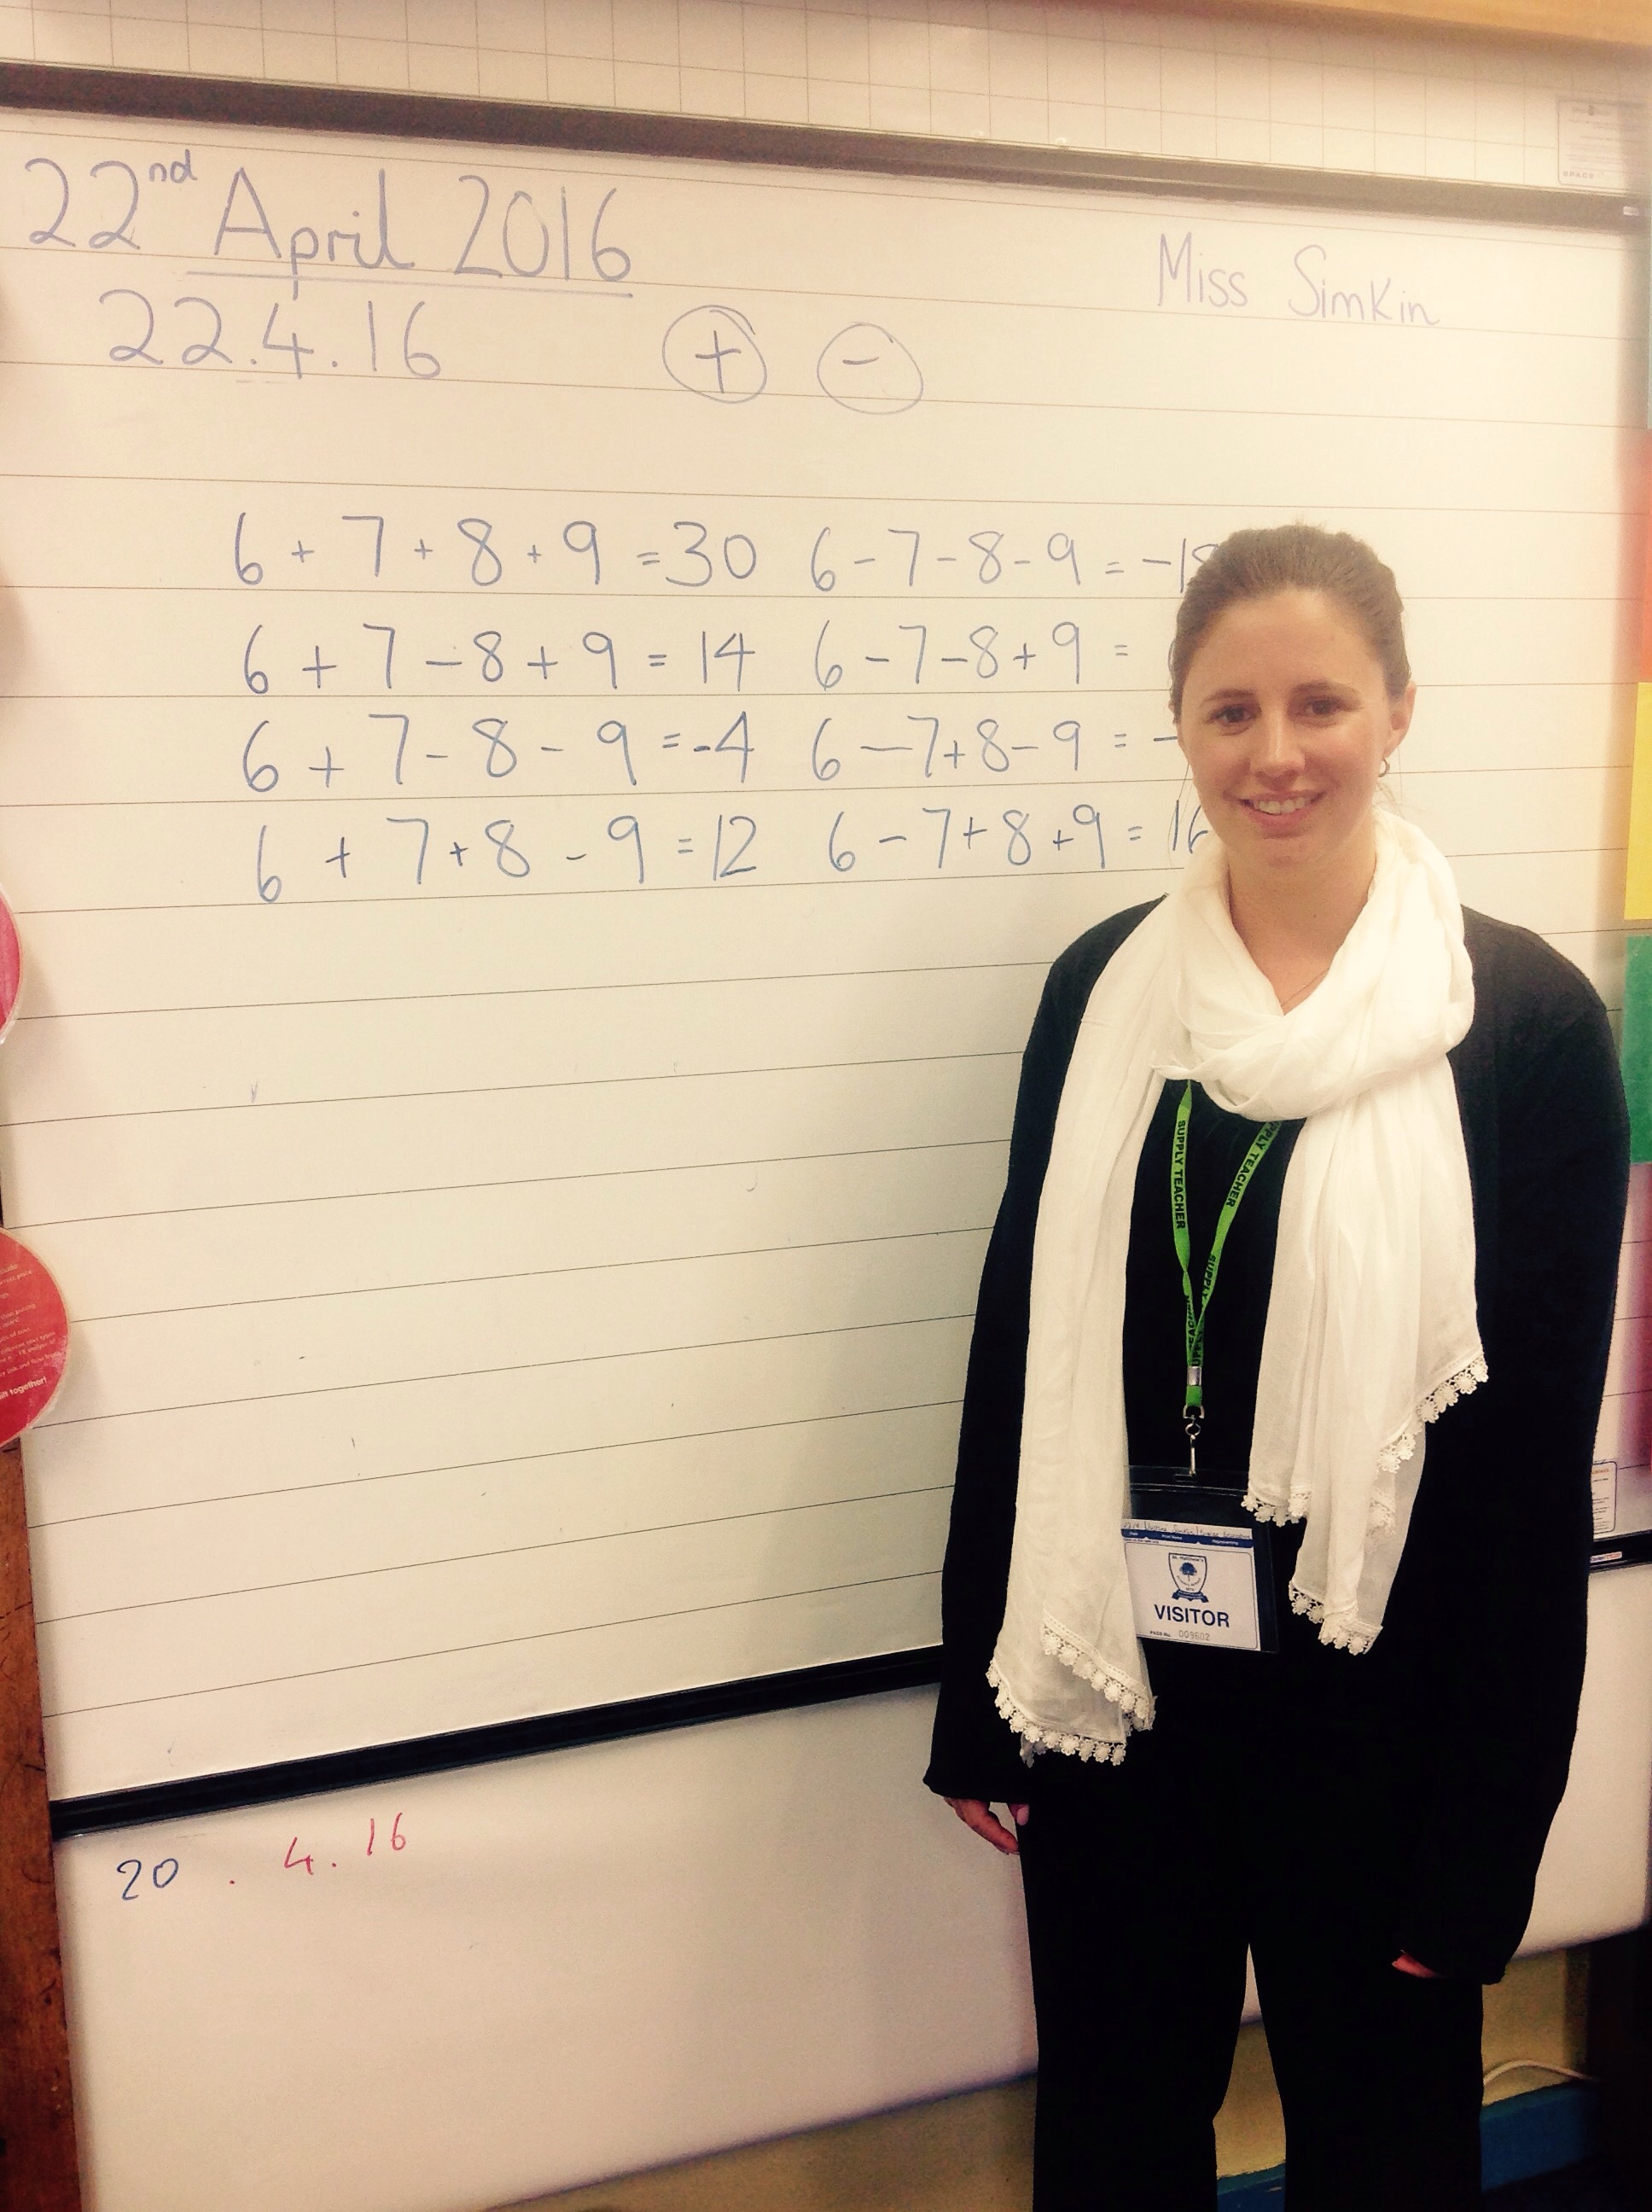 22nd April 2016
Miss Simkin
22.4.16 + -
6 + 7 + 8 + 9 = 30 6 - 7 - 8 - 9 = -18
6 + 7 - 8 + 9 = 14 6 - 7 - 8 + 9 =
6 + 7 - 8 - 9 = -4 6 - 7 + 8 - 9 = -
6 + 7 + 8 - 9 = 12 6 - 7 + 8 + 9 = 16
SUPPLY TEACHER
SUPPLY TEACHER
St. Matthew's
VISITOR
PASS No. 009602
20 . 4 . 16